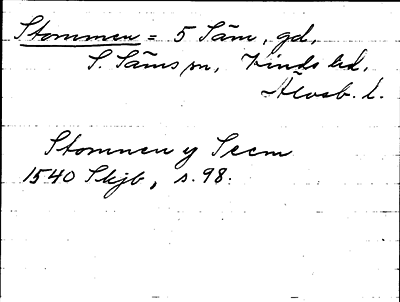 Stommen = 5 Säm, gd,
S. Säms sn, Kinds hd,
Älvsb. l.
Stomnen y Seem
1540 Skjb, s. 98.